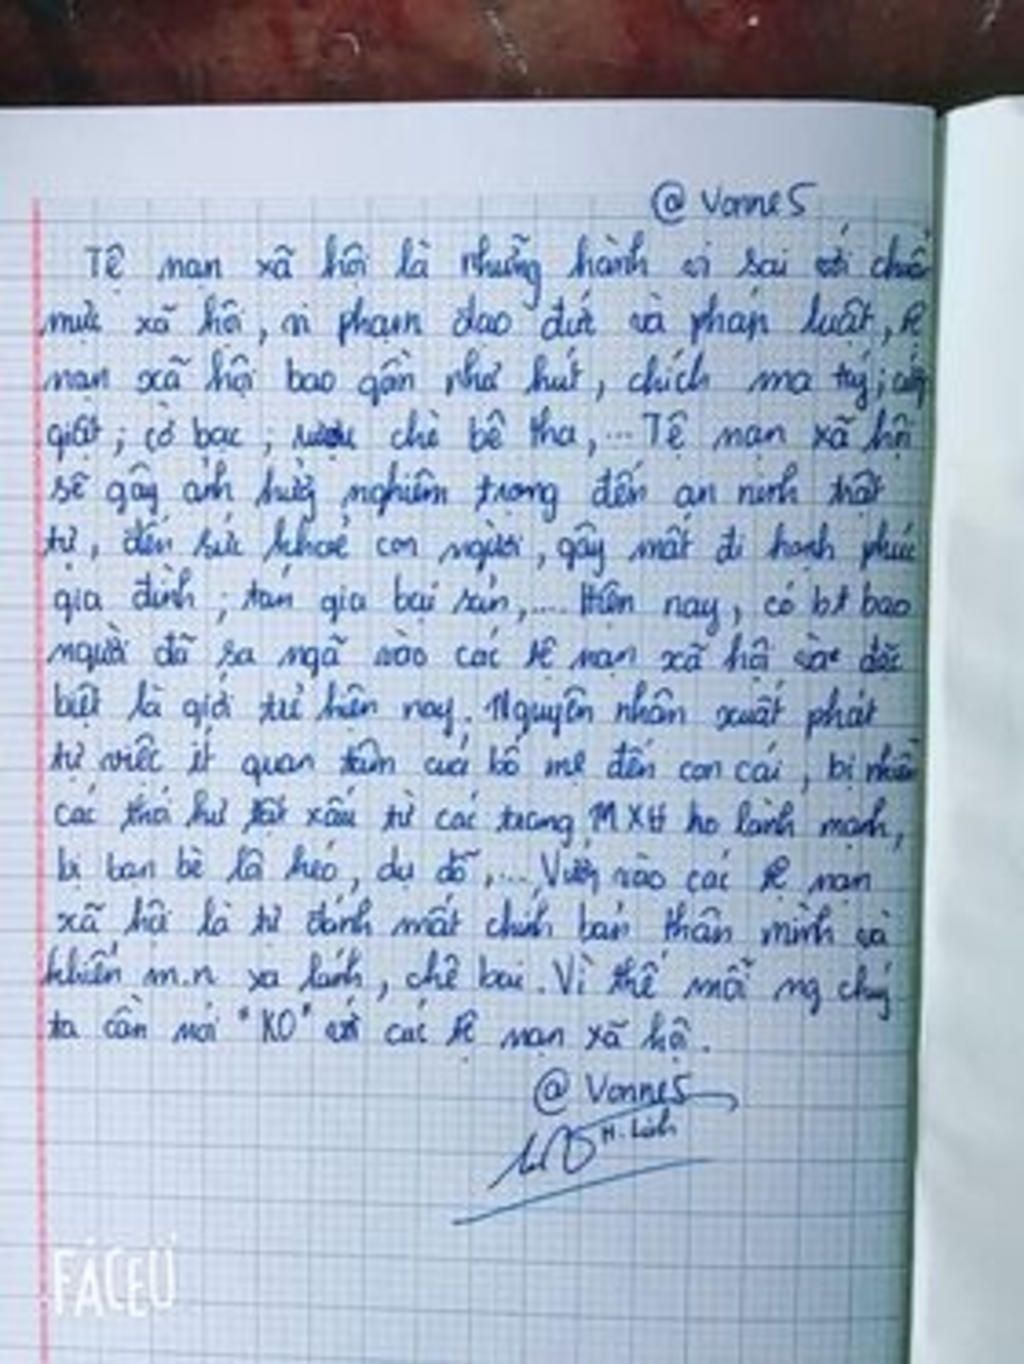 @ Vonne5
Tệ nạn xã hội là những hành vi sai với chuẩn
mực xã hội, vi phạm đạo đức và pháp luật, tệ
nạn xã hội bao gồm như hút, chích ma túy; cướp
giật; cờ bạc; rượu chè bê tha,... Tệ nạn xã hội
sẽ gây ảnh hưởng nghiêm trọng đến an ninh trật
tự, đến sức khoẻ con người, gây mất đi hạnh phúc
gia đình; tán gia bại sản,... Hiện nay, có bt bao
người đã sa ngã vào các tệ nạn xã hội và đặc
biệt là giới trẻ hiện nay. Nguyên nhân xuất phát
từ việc ít quan tâm của bố mẹ đến con cái, bị nhiễm
các thói hư tật xấu từ các trang MXH ko lành mạnh,
bị bạn bè lôi kéo, dụ dỗ,... Vướng vào các tệ nạn
xã hội là tự đánh mất chính bản thân mình và
khiến m.n xa lánh, chê bai. Vì thế mỗi ng chúng
ta cần nói "KO" với các tệ nạn xã hội.
@ Vonne5
H. Linh
FACEU